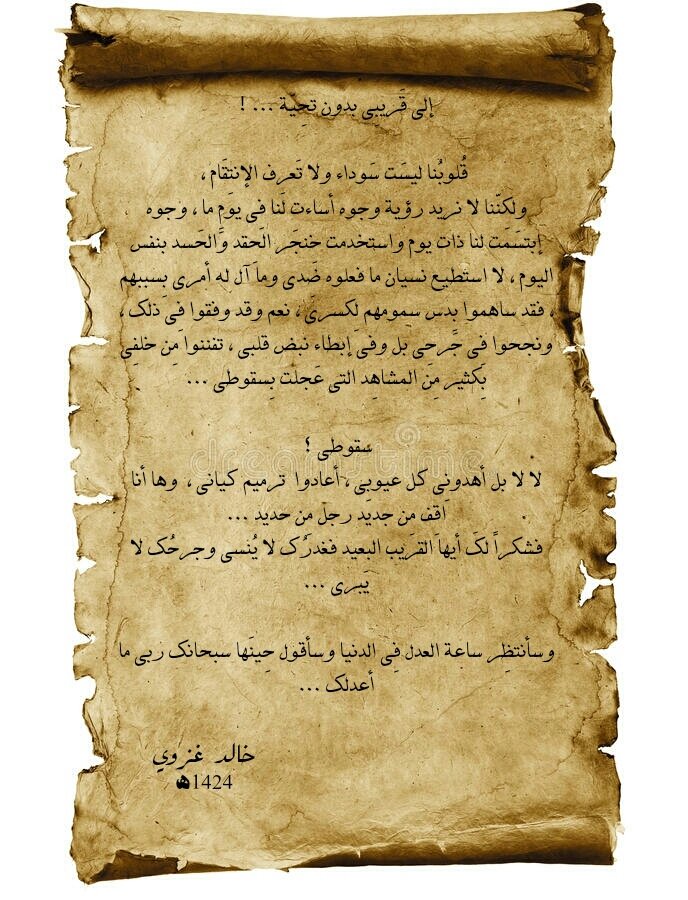 إلى قَريبى بدون تحِيّة ... !
قُلوبُنا ليسَت سَوداء ولا تَعرف الإنتقَام ،
ولكنّنا لا نريد رؤية وجوه أساءت لَنا فى يوَم ما ، وجوه
إبتسَمَت لنا ذات يوم واستخدمت خنجَر الَحقد وَّالحَسد بنفس
اليوم ، لا استطيع نسيان ما فعلوه ضَدى وماَ آل له أمرى بسببهم
، فقد ساهموا بدس سمومهم لكسرىَ ، نعم وقد وفقوا فىَ ذلك ،
ونجحوا فى جَّرحى بل وفىَ إبطاء نبض قلبى ، تفننوا مِن خلفِى
بِكثير مِنَ المشاهِد التى عَجلت بِسقوطى ...
سقوطى ؟
لا لا بل أهدونى كل عيوبِى ، أعادوا ترميم كيانى ، وها أنا
أقف من جديد رجل من حديد ...
فشكراً لك أيهاَ القرَيب البعيد فغدرُك لا يُنسى وجرحُك لا
يَبرى ...
dreamstime
وسأنتظِر ساعِة العدل فِى الدنيا وسأقول حِينَها سبحانك ربى ما
أعدلك ...
خالد غزوي
1424ه